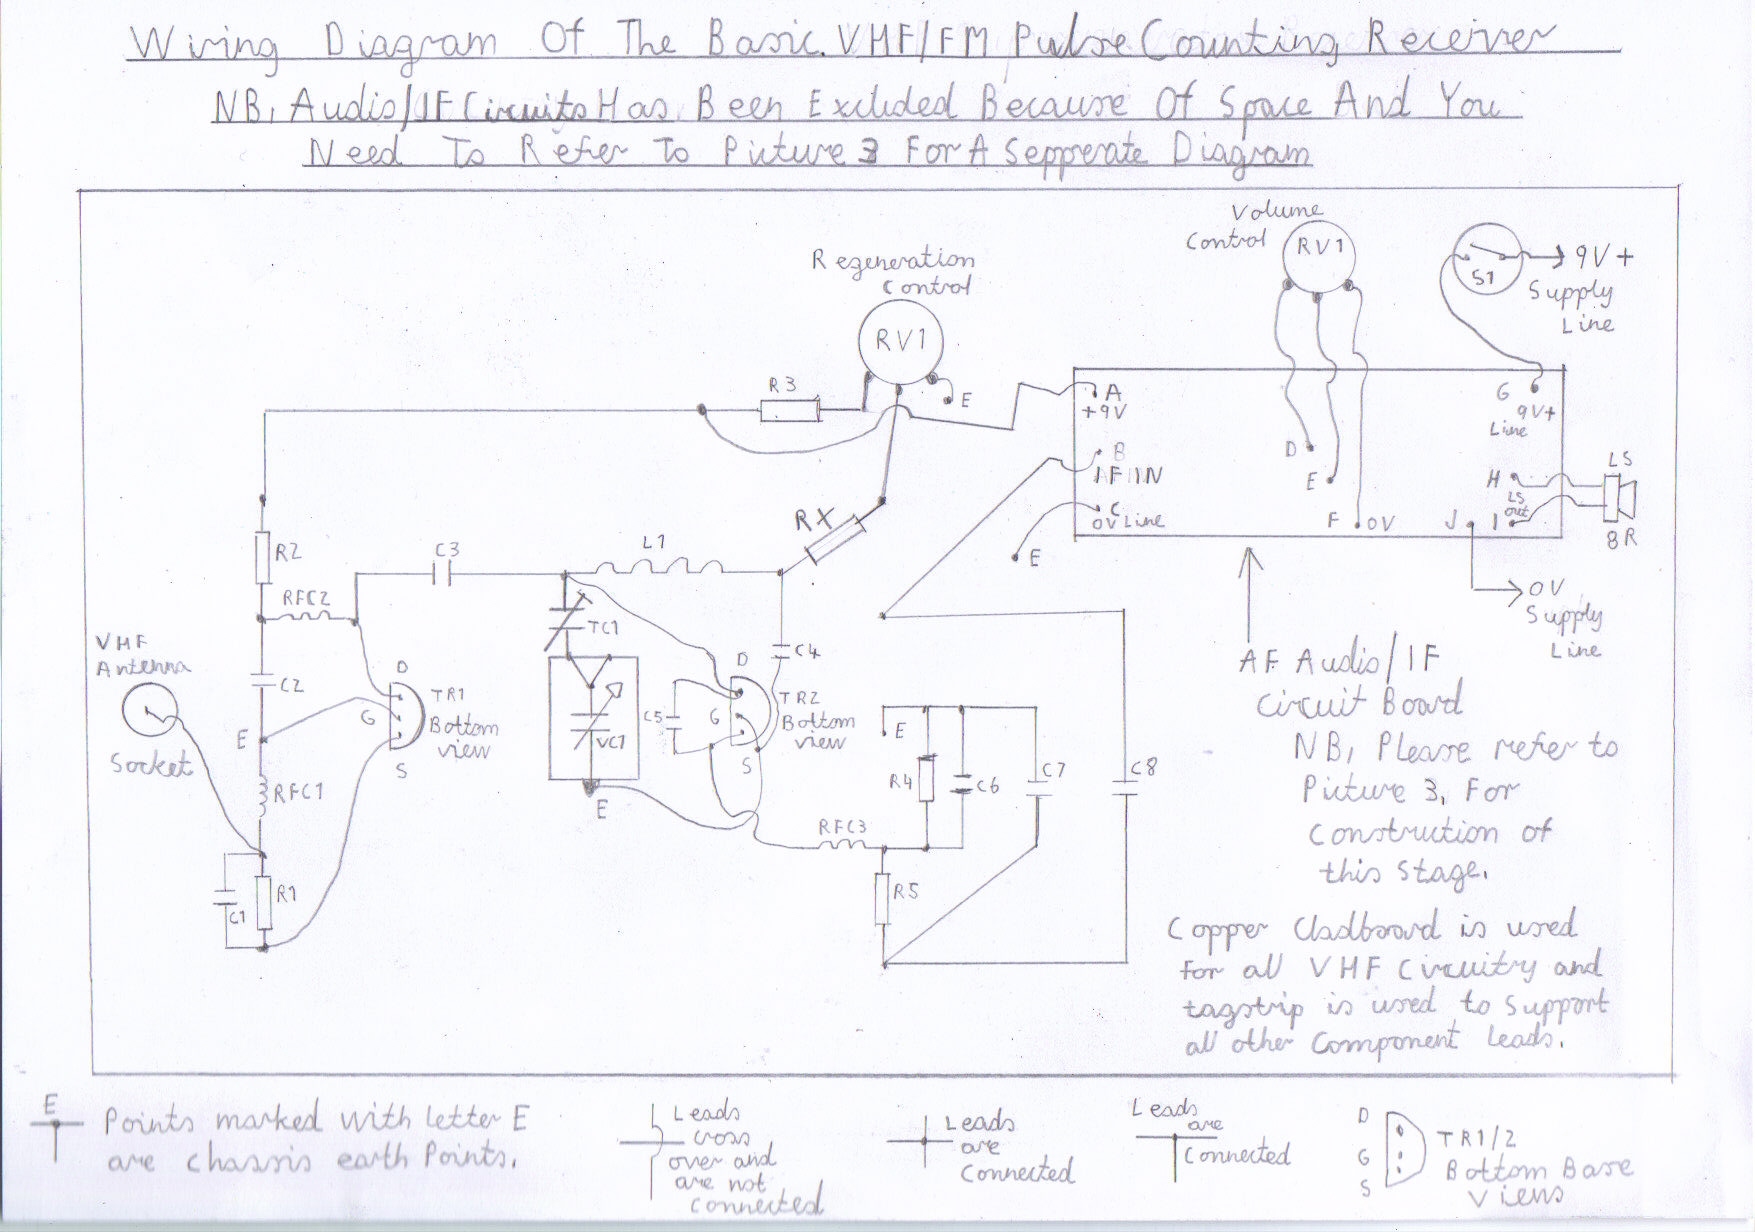 Wiring Diagram Of The Basic VHF/FM Pulse Counting Receiver
NB, Audio/IF Circuits Has Been Exluded Because Of Space And You
Need To Refer To Picture 3 For A Sepperate Diagram
Volume
Control
RV1
S1
9V+
Supply
Line
Regeneration
Control
RV1
R3
E
A
+9V
B
AF IN
C
0V Line
E
D
E
F
0V
G
9V+
Line
H
LS
out
I
J
LS
8R
0V
Supply
Line
R2
RFC2
C3
L1
RX
TC1
C4
VHF
Antenna
Socket
C2
E
D
G
S
TR1
Bottom
view
RFC1
C1
R1
VC1
E
C5
D
G
S
TR2
Bottom
view
RFC3
E
R4
C6
C7
C8
R5
AF Audio/IF
Circuit Board
NB, Please refer to
Picture 3, For
Construction of
this stage.
Copper Cladboard is used
for all VHF Circuitry and
tagstrip is used to support
all other Component Leads.
E
Points marked with letter E
are chassis earth Points.
Leads
cross
over and
are not
connected
Leads
are
Connected
Leads
are
Connected
D
G
S
TR1/2
Bottom Base
Views